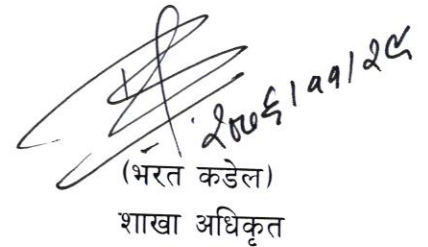 २०७६।११।२९
(भरत कडेल)
शाखा अधिकृत